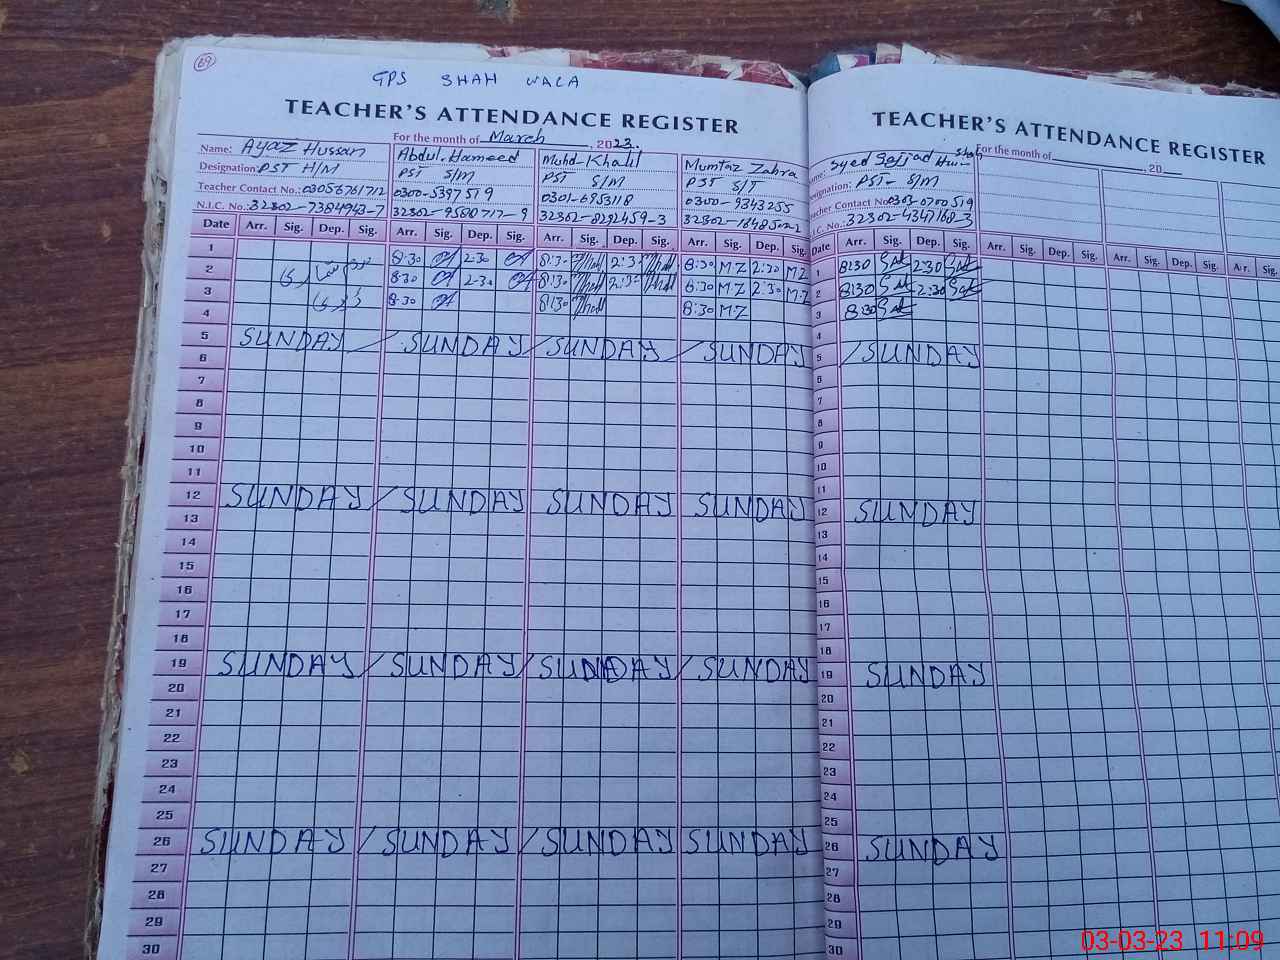 69
GPS SHAH WALA
TEACHER'S ATTENDANCE REGISTER
For the month of March, 2023.
Name: Ayaz Hussan Abdul.Hameed Muhd-Khalil Mumtaz Zahra
Designation: PST H/M PST S/M PST S/M PST S/T
Teacher Contact No.: 03056761712 0300-5397519 0301-6953118 0300-9343255
N.I.C. No.: 32302-7384943-7 32302-9580717-9 32302-8292459-3
Date Arr. Sig. Dep. Sig. Arr. Sig. Dep. Sig. Arr. Sig. Dep. Sig. Arr. Sig. Dep. Sig.
1 8:30 2:30 8:30 2:30 8:30 MZ 2:30 MZ
2 8:30 2:30 8:30 2:30 8:30 MZ 2:30 MZ
3 8:30 8:30 8:30 MZ
4
5 SUNDAY SUNDAY SUNDAY SUNDAY
6
7
8
9
10
11
12 SUNDAY SUNDAY SUNDAY SUNDAY
13
14
15
16
17
18
19 SUNDAY SUNDAY SUNDAY SUNDAY
20
21
22
23
24
25
26 SUNDAY SUNDAY SUNDAY SUNDAY
27
28
29
30
TEACHER'S ATTENDANCE REGISTER
For the month of 20
Name: Syed Sajjad Shah
Designation: PST- S/M
Teacher Contact No 0303-0700519
N.I.C. No.: 32302-4347168-3
Date Arr. Sig. Dep. Sig. Arr. Sig. Dep. Sig. Arr. Sig. Dep. Sig. Arr. Sig.
1 8:30 2:30
2 8:30 2:30
3 8:30
4
5 SUNDAY
6
7
8
9
10
11
12 SUNDAY
13
14
15
16
17
18
19 SUNDAY
20
21
22
23
24
25
26 SUNDAY
27
28
29
30
03-03-23 11:09